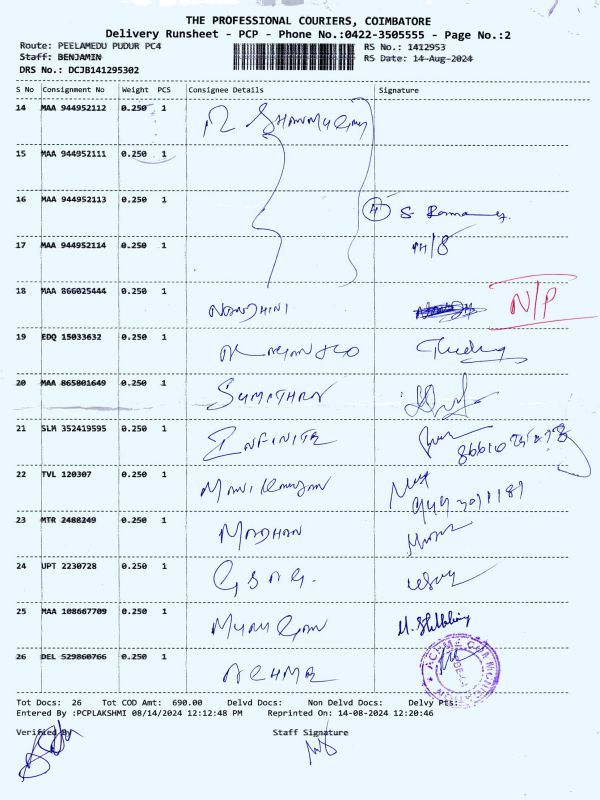 THE PROFESSIONAL COURIERS, COIMBATORE
Delivery Runsheet - PCP - Phone No.:0422-3505555 - Page No.:2
Route: PEELAMEDU PUDUR PC4 RS No.: 1412953
Staff: BENJAMIN RS Date: 14-Aug-2024
DRS No.: DCJB141295302
S No Consignment No Weight PCS Consignee Details Signature
14 MAA 944952112 0.250 1
15 MAA 944952111 0.250 1
16 MAA 944952113 0.250 1 4
17 MAA 944952114 0.250 1 PH/8
18 MAA 866025444 0.250 1 NANDHINI N/P
19 EDQ 15033632 0.250 1
20 MAA 865801649 0.250 1 SUMATHRA
21 SLM 352419595 0.250 1 INFINITE
22 TVL 120307 0.250 1
23 MTR 2488249 0.250 1 MADHAN
24 UPT 2230728 0.250 1
25 MAA 108667709 0.250 1 MURUGAN
26 DEL 529860766 0.250 1 ACHME
Tot Docs: 26 Tot COD Amt: 690.00 Delvd Docs: Non Delvd Docs: Delvy Pts:
Entered By :PCPLAKSHMI 08/14/2024 12:12:48 PM Reprinted On: 14-08-2024 12:20:46
Verified By Staff Signature